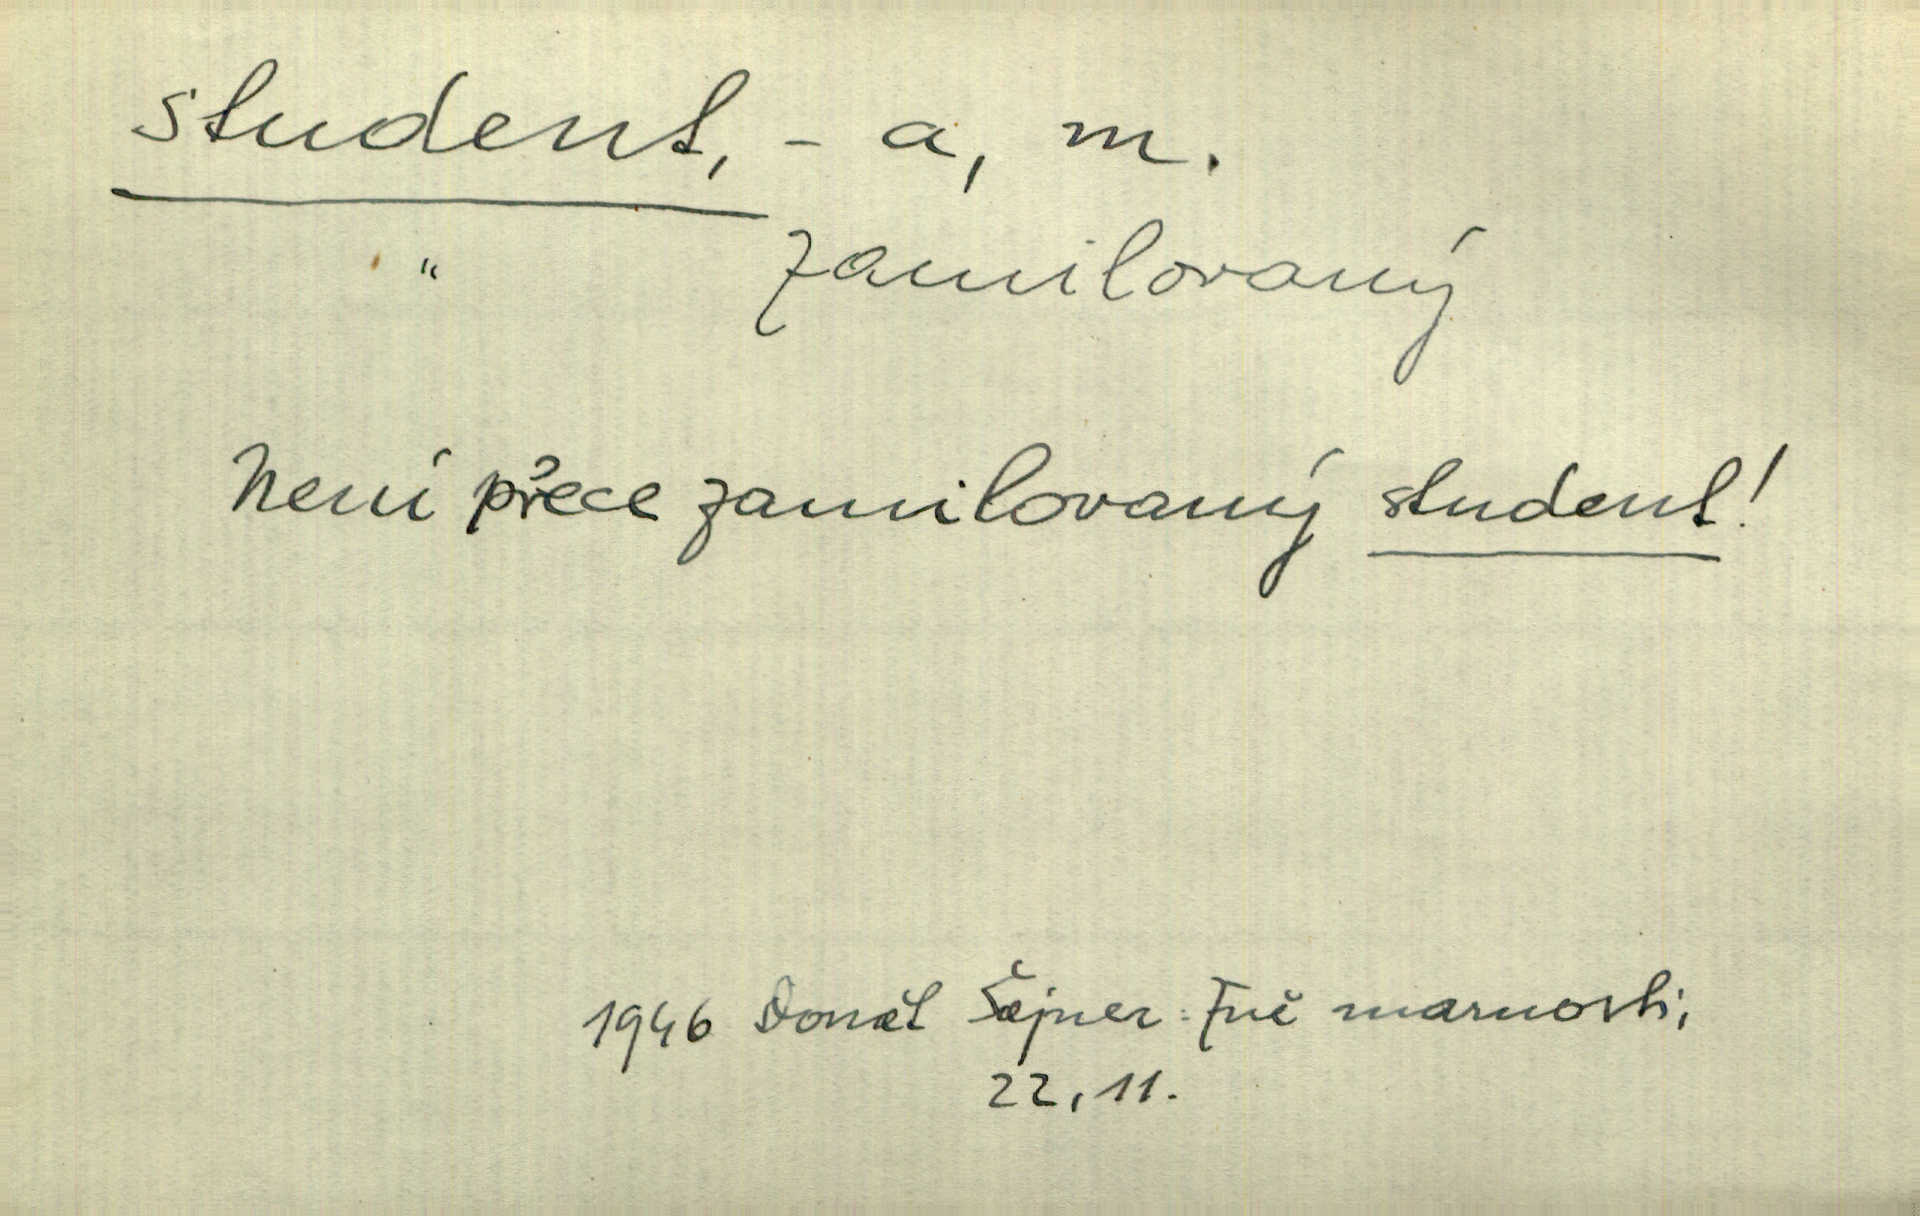 student, - a, m.
" zamilovaný
Není přece zamilovaný student!
1946 Donát Šajner: Zně marnosti,
22, 11.